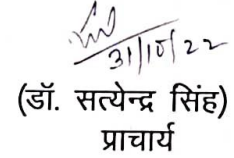 31/10/22
(डॉ. सत्येन्द्र सिंह)
प्राचार्य